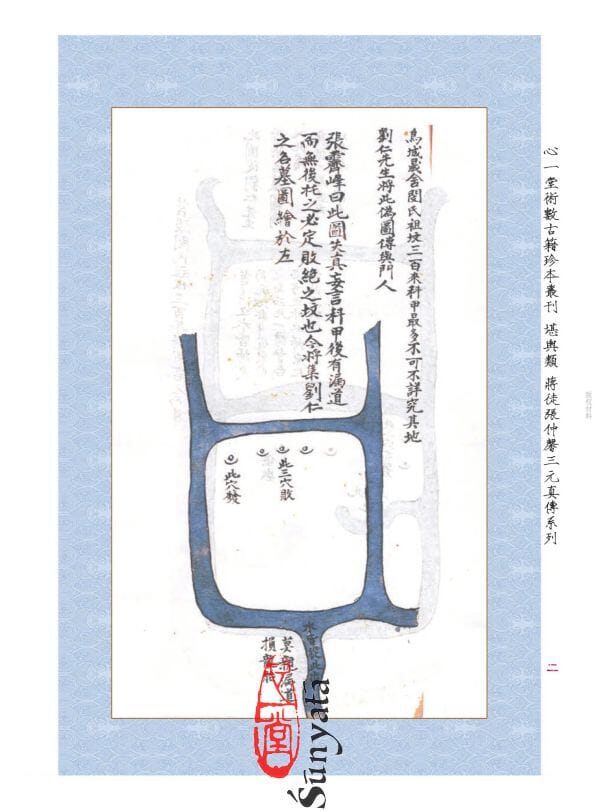 烏城晟舍閔氏祖坟三百来科甲最多不可不詳究其地
劉仁先生将此偽圖傳與門人
張霽峰曰此圖失真妄言科甲後有漏道
而無後托之必定敗絕之坟也今将集劉仁
之各墓圖繪於左
此三穴敗
此穴發
漏道
損
心一堂術數古籍珍本叢刊 堪輿類 蔣徒張仲馨三元真傳系列
二
版权材料
心一堂
Śūnyatā